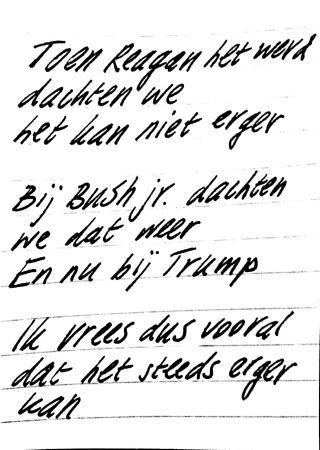 Toen Reagan het werd
dachten we
het kan niet erger
Bij Bush jr. dachten
we dat weer
En nu bij Trump
Ik vrees dus vooral
dat het steeds erger
kan